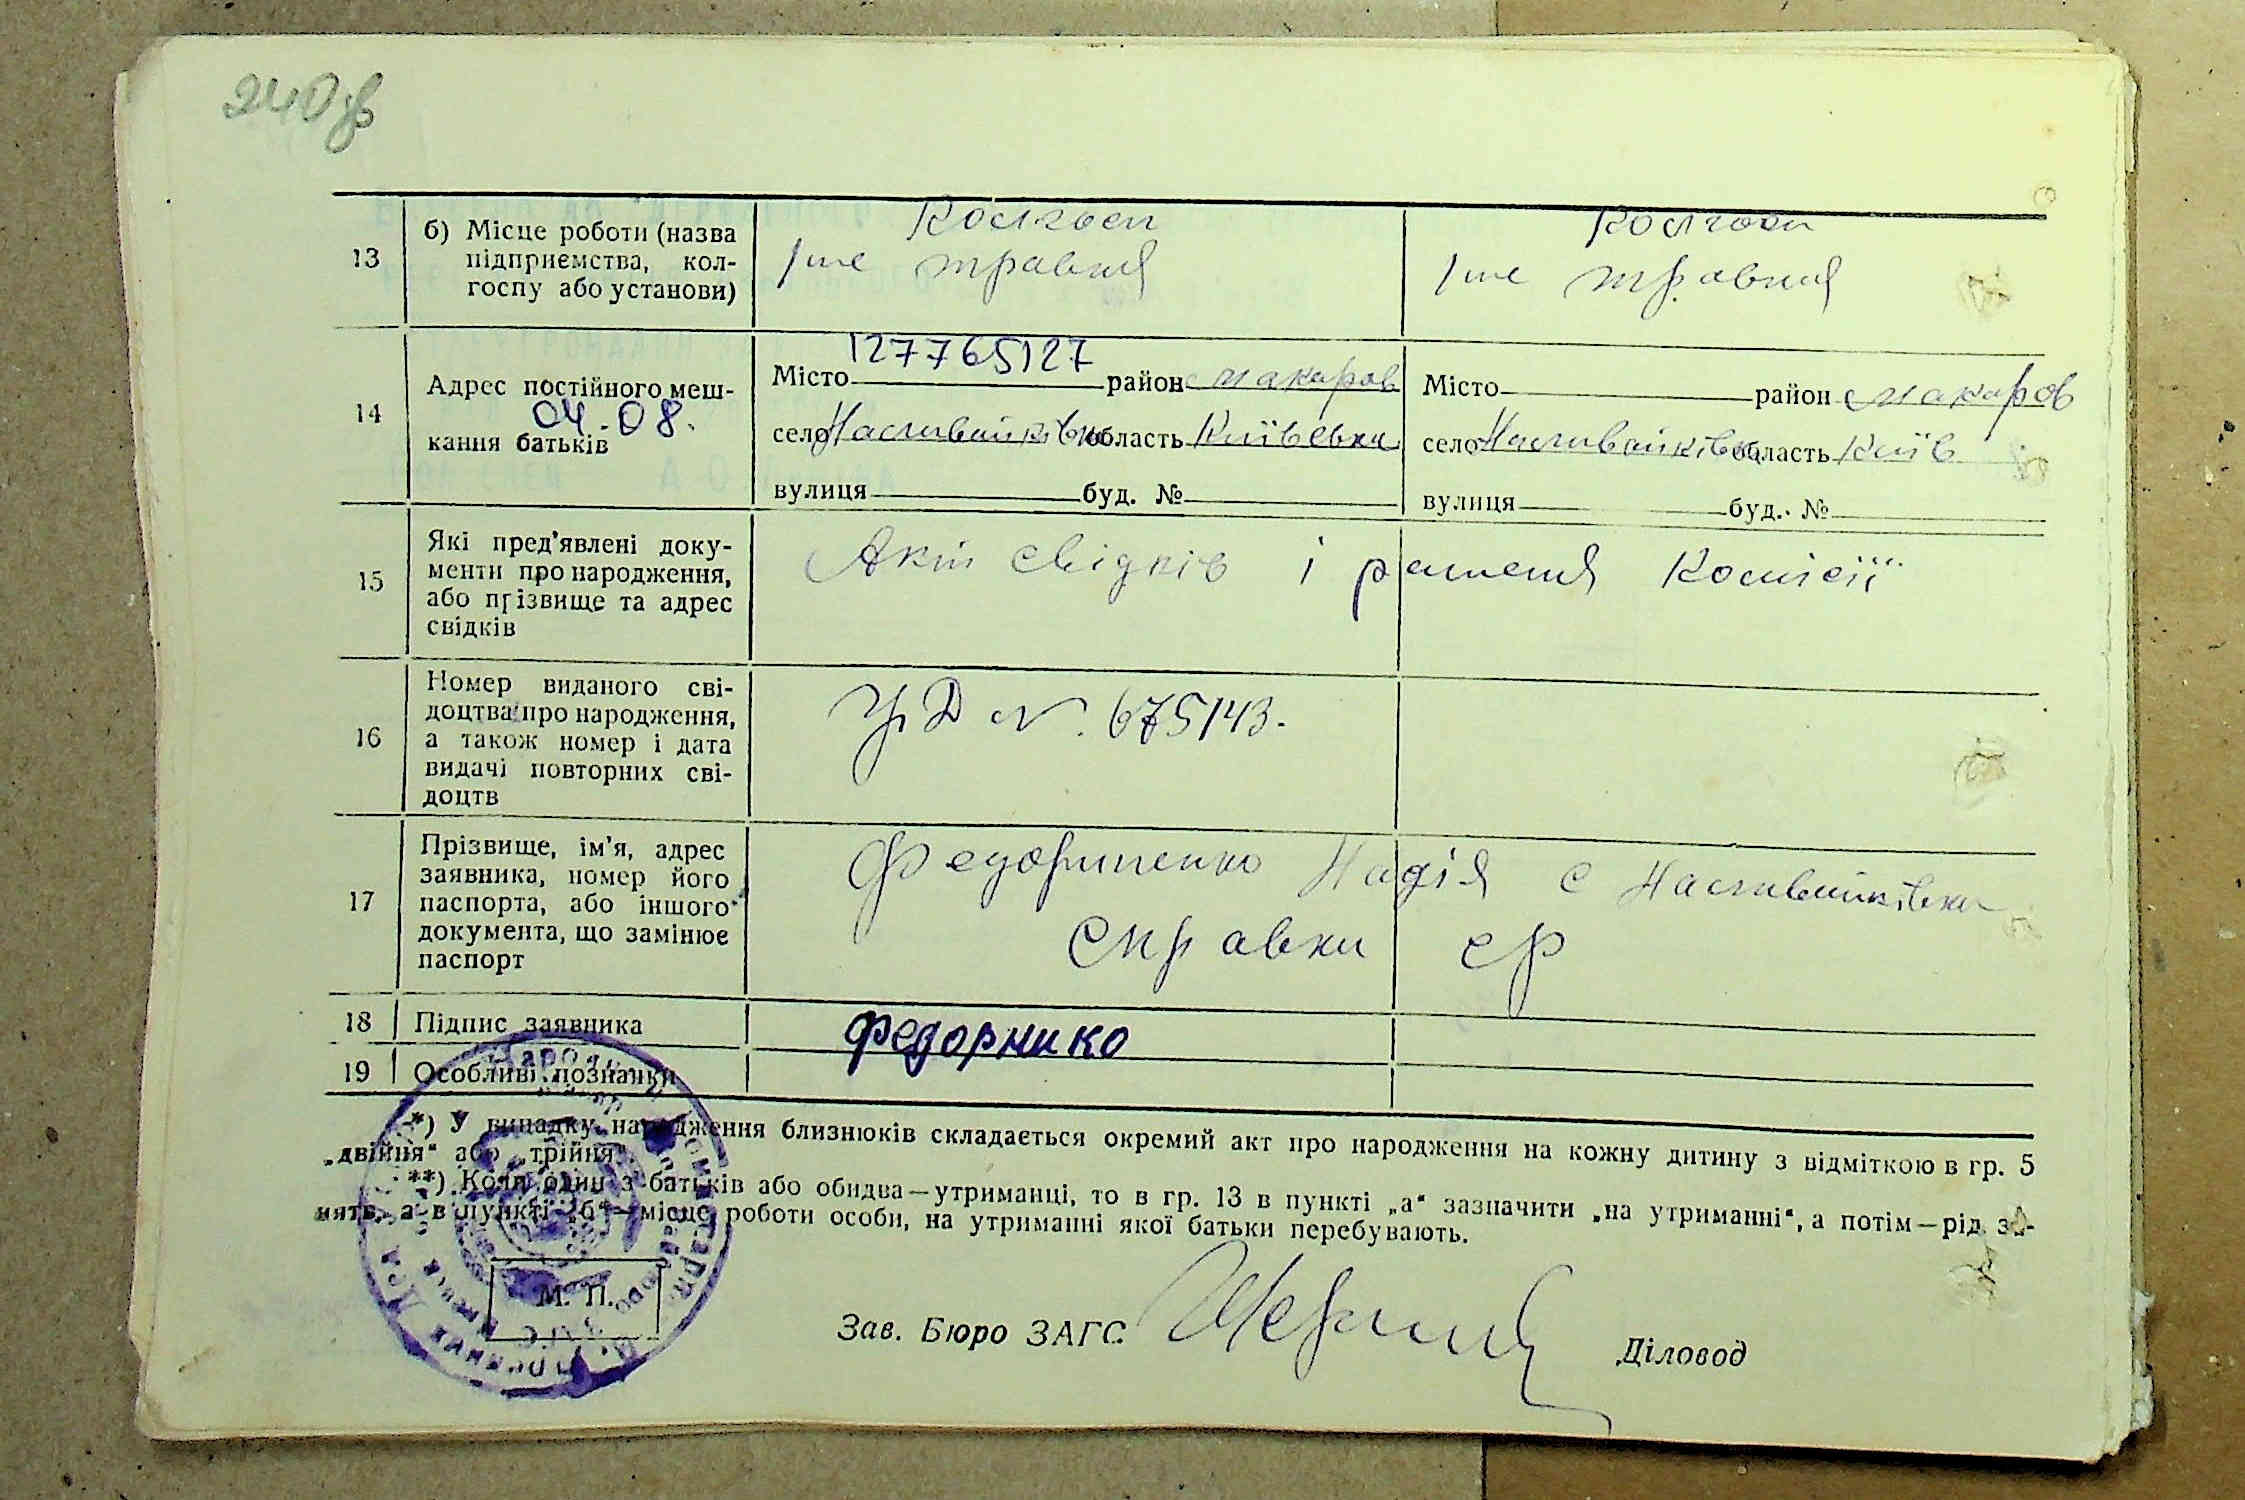 240зв
13
б) Місце роботи (назва
підприємства, кол-
госпу або установи)
Колгосп
1ше травня
Колгосп
1ше травня
14
Адрес постійного меш-
04.08.
кання батьків
127765127
Місто район Макаров
село Наливайківка область Київська
вулиця буд. №
Місто район Макаров
село Наливайківка область Київ
вулиця буд. №
15
Які пред'явлені доку-
менти про народження,
або прізвище та адрес
свідків
Акт свідків і рішення Комісії
16
Номер виданого сві-
доцтва про народження,
а також номер і дата
видачі повторних сві-
доцтв
УД № 675143.
17
Прізвище, ім'я, адрес
заявника, номер його
паспорта, або іншого
документа, що замінює
паспорт
Надія с Наливайківка
Справки ср
18
Підпис заявника
Федорнико
19
Особливі познанки
*) У випадку народження близнюків складається окремий акт про народження на кожну дитину з відміткою в гр. 5
„двійня“ або „трійня“.
**) Коли один з батьків або обидва—утриманці, то в гр. 13 в пункті „а“ зазначити „на утриманні“, а потім—рід за-
няття, а в пункті „б“—місце роботи особи, на утриманні якої батьки перебувають.
М. П.
Зав. Бюро ЗАГС
Діловод